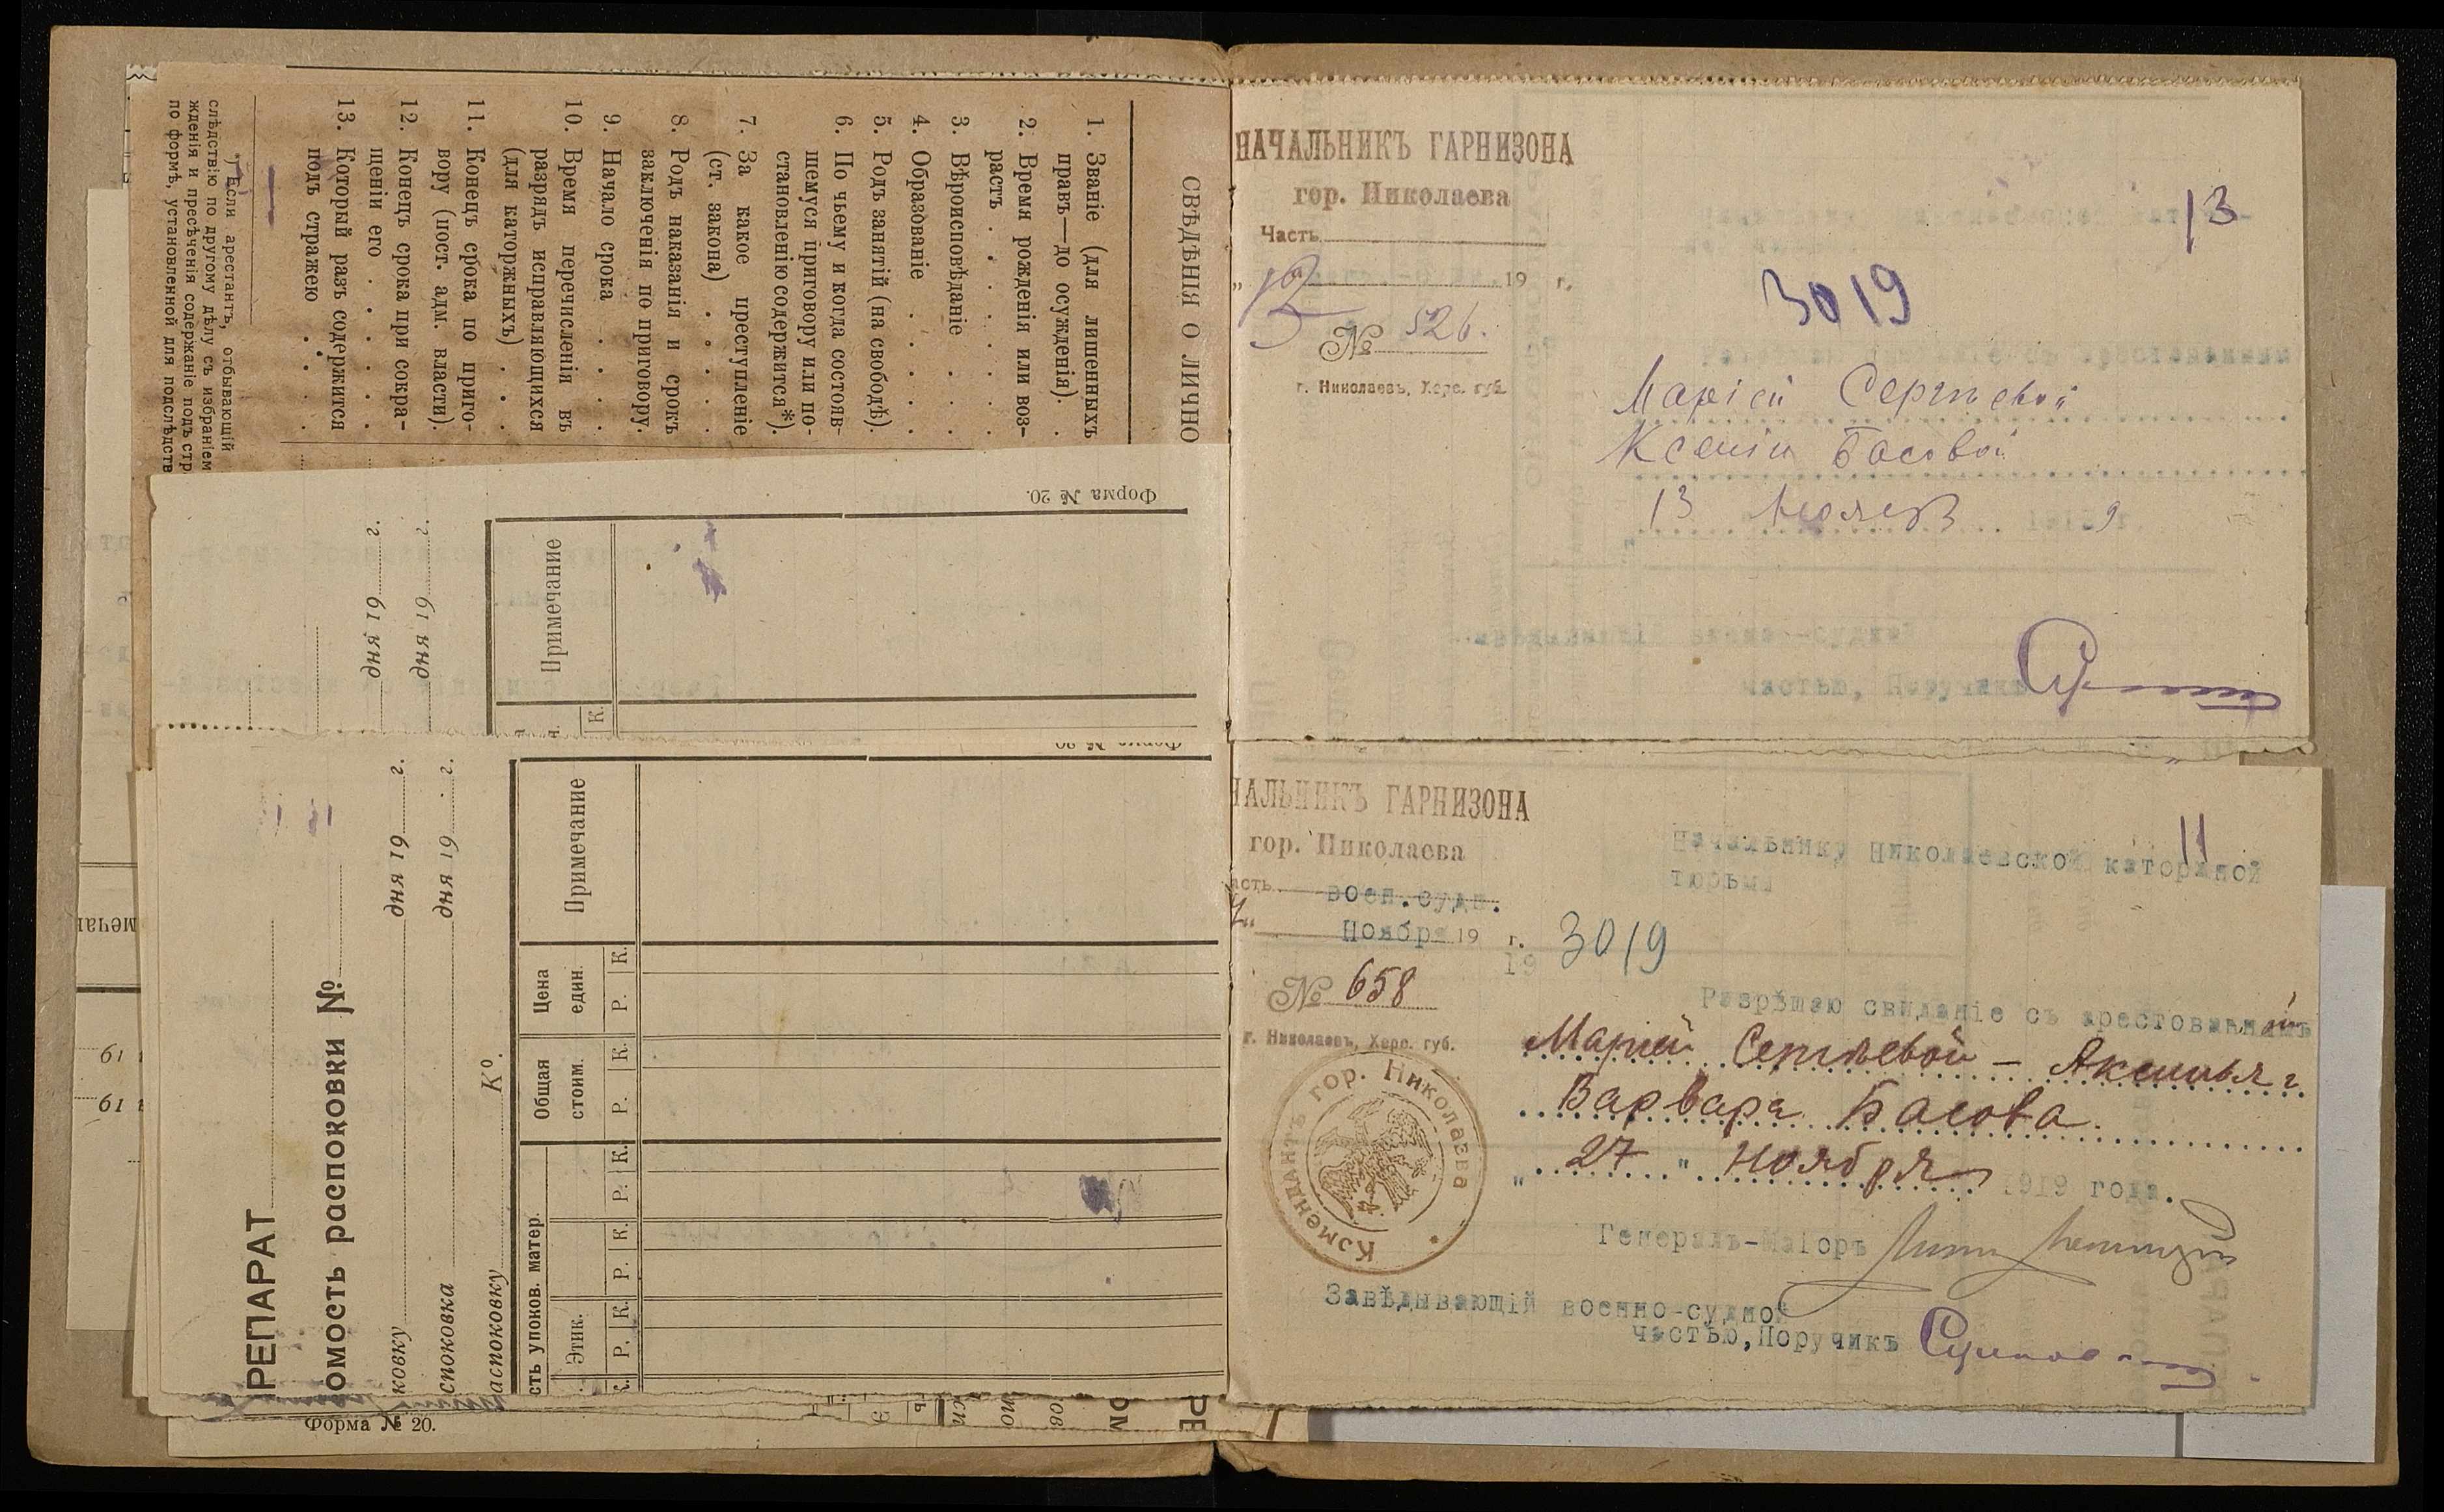 СВѢДѢНІЯ О ЛИЧНО
1. Званіе (для лишенныхъ
правъ—до осужденія). .
2. Время рожденія или воз-
растъ . . . . . .
3. Вѣроисповѣданіе . . .
4. Образованіе . . . .
5. Родъ занятій (на свободѣ).
6. По чьему и когда состояв-
шемуся приговору или по-
становленію содержится*).
7. За какое преступленіе
(ст. закона) . . . .
8. Родъ наказанія и срокъ
заключенія по приговору.
9. Начало срока . . . .
10. Время перечисленія въ
разрядъ исправляющихся
(для каторжныхъ) . . .
11. Конецъ срока по приго-
вору (пост. адм. власти).
12. Конецъ срока при сокра-
щеніи его . . . . .
13. Который разъ содержится
подъ стражею . . . .
*) Если арестантъ, отбывающій
слѣдствію по другому дѣлу съ избраніем
жденія и пресѣченія содержаніе подъ стр
по формѣ, установленной для подслѣдств
Форма № 20.
дня 19 г.
дня 19 г.
Примечание
К.
Форма № 20.
РЕПАРАТ
омость распоковки №
ковку дня 19 г.
споковка дня 19 г.
аспоковку К⁰.
сть упоков. матер.
Общая стоим.
Цена един.
Примечание
Этик.
Р. К. Р. К. Р. К. Р. К. Р. К.
Форма № 20.
НАЧАЛЬНИКЪ ГАРНИЗОНА
гор. Николаева
Часть
19 г.
№ 526.
г. Николаевъ, Херс. губ.
13
3019
Маріей Сергѣевой
Ксеніи Басовой
13
9
частью, Поручикъ
НАЛЬНИКЪ ГАРНИЗОНА
гор. Николаева
асть воен.судн.
Ноября 19 г.
№ 658
г. Николаевъ, Херс. губ.
Комендантъ гор. Николаева
11
Начальнику Николаевской каторжной
тюрьмы
3019
Разрѣшаю свиданіе съ арестованнымъ
Маріей Сергѣевой – Аксинья и
Варвара Басова
" 27 " Ноября 1919 года.
Генералъ-Маіоръ
Завѣдывающій военно-судной
частью, Поручикъ